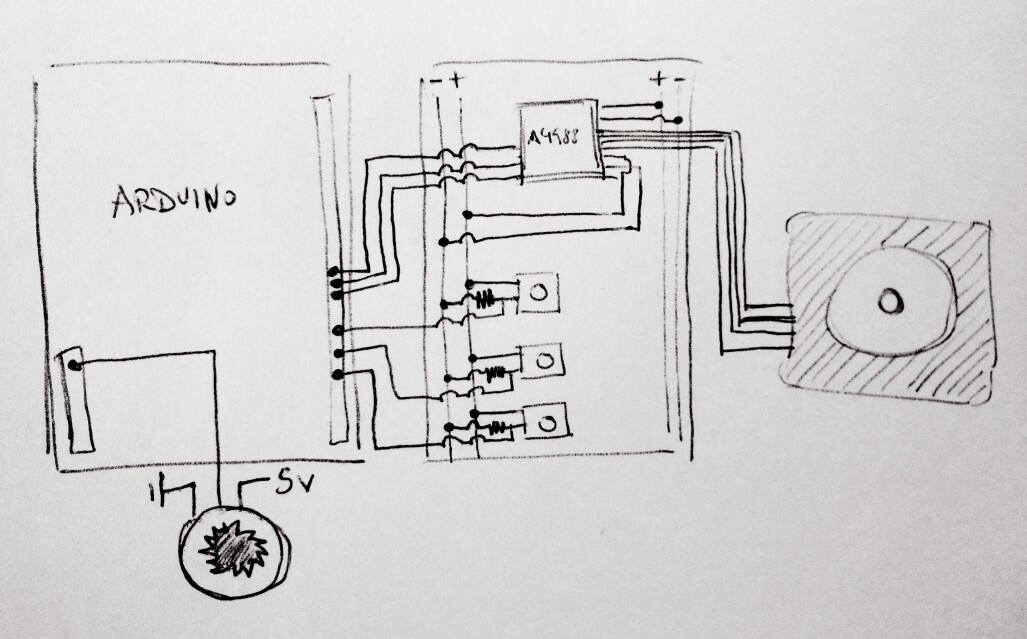 - +
+ -
A4988
ARDUINO
5V